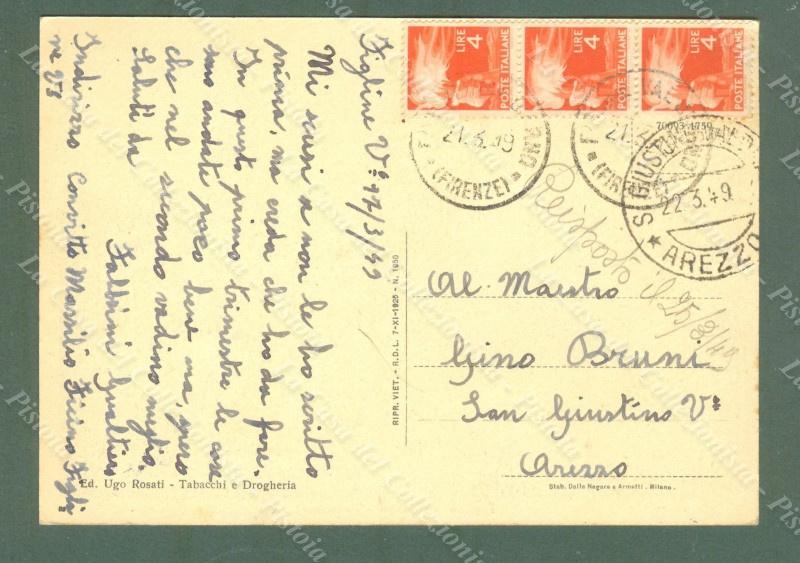 Figline V° 17/3/49
Mi scusi se non le ho scritto
prima, ma creda che ho da fare.
In questo primo trimestre le cose
sono andate poco bene ma, spero
che nel secondo vadino meglio,
Saluti da
Falbini Gualtiero
Indirizzo Convitto Marsilio Ficino Figli
ne V°
LIRE 4
POSTE ITALIANE
LIRE 4
POSTE ITALIANE
LIRE 4
POSTE ITALIANE
21.3.49
(FIRENZE)
21.3
(FIRENZE)
S. GIUSTINO VALD
22.3.49
AREZZO
Risposto il 25/
Al Maestro
Gino Bruni
San Giustino V°
Arezzo
RIPR. VIET. - R.D.L. 7-XI-1925 - N. 1950
Ed. Ugo Rosati - Tabacchi e Drogheria
Stab. Dalle Nogare e Armetti - Milano.
La Casa del Collezionista - Pistoia